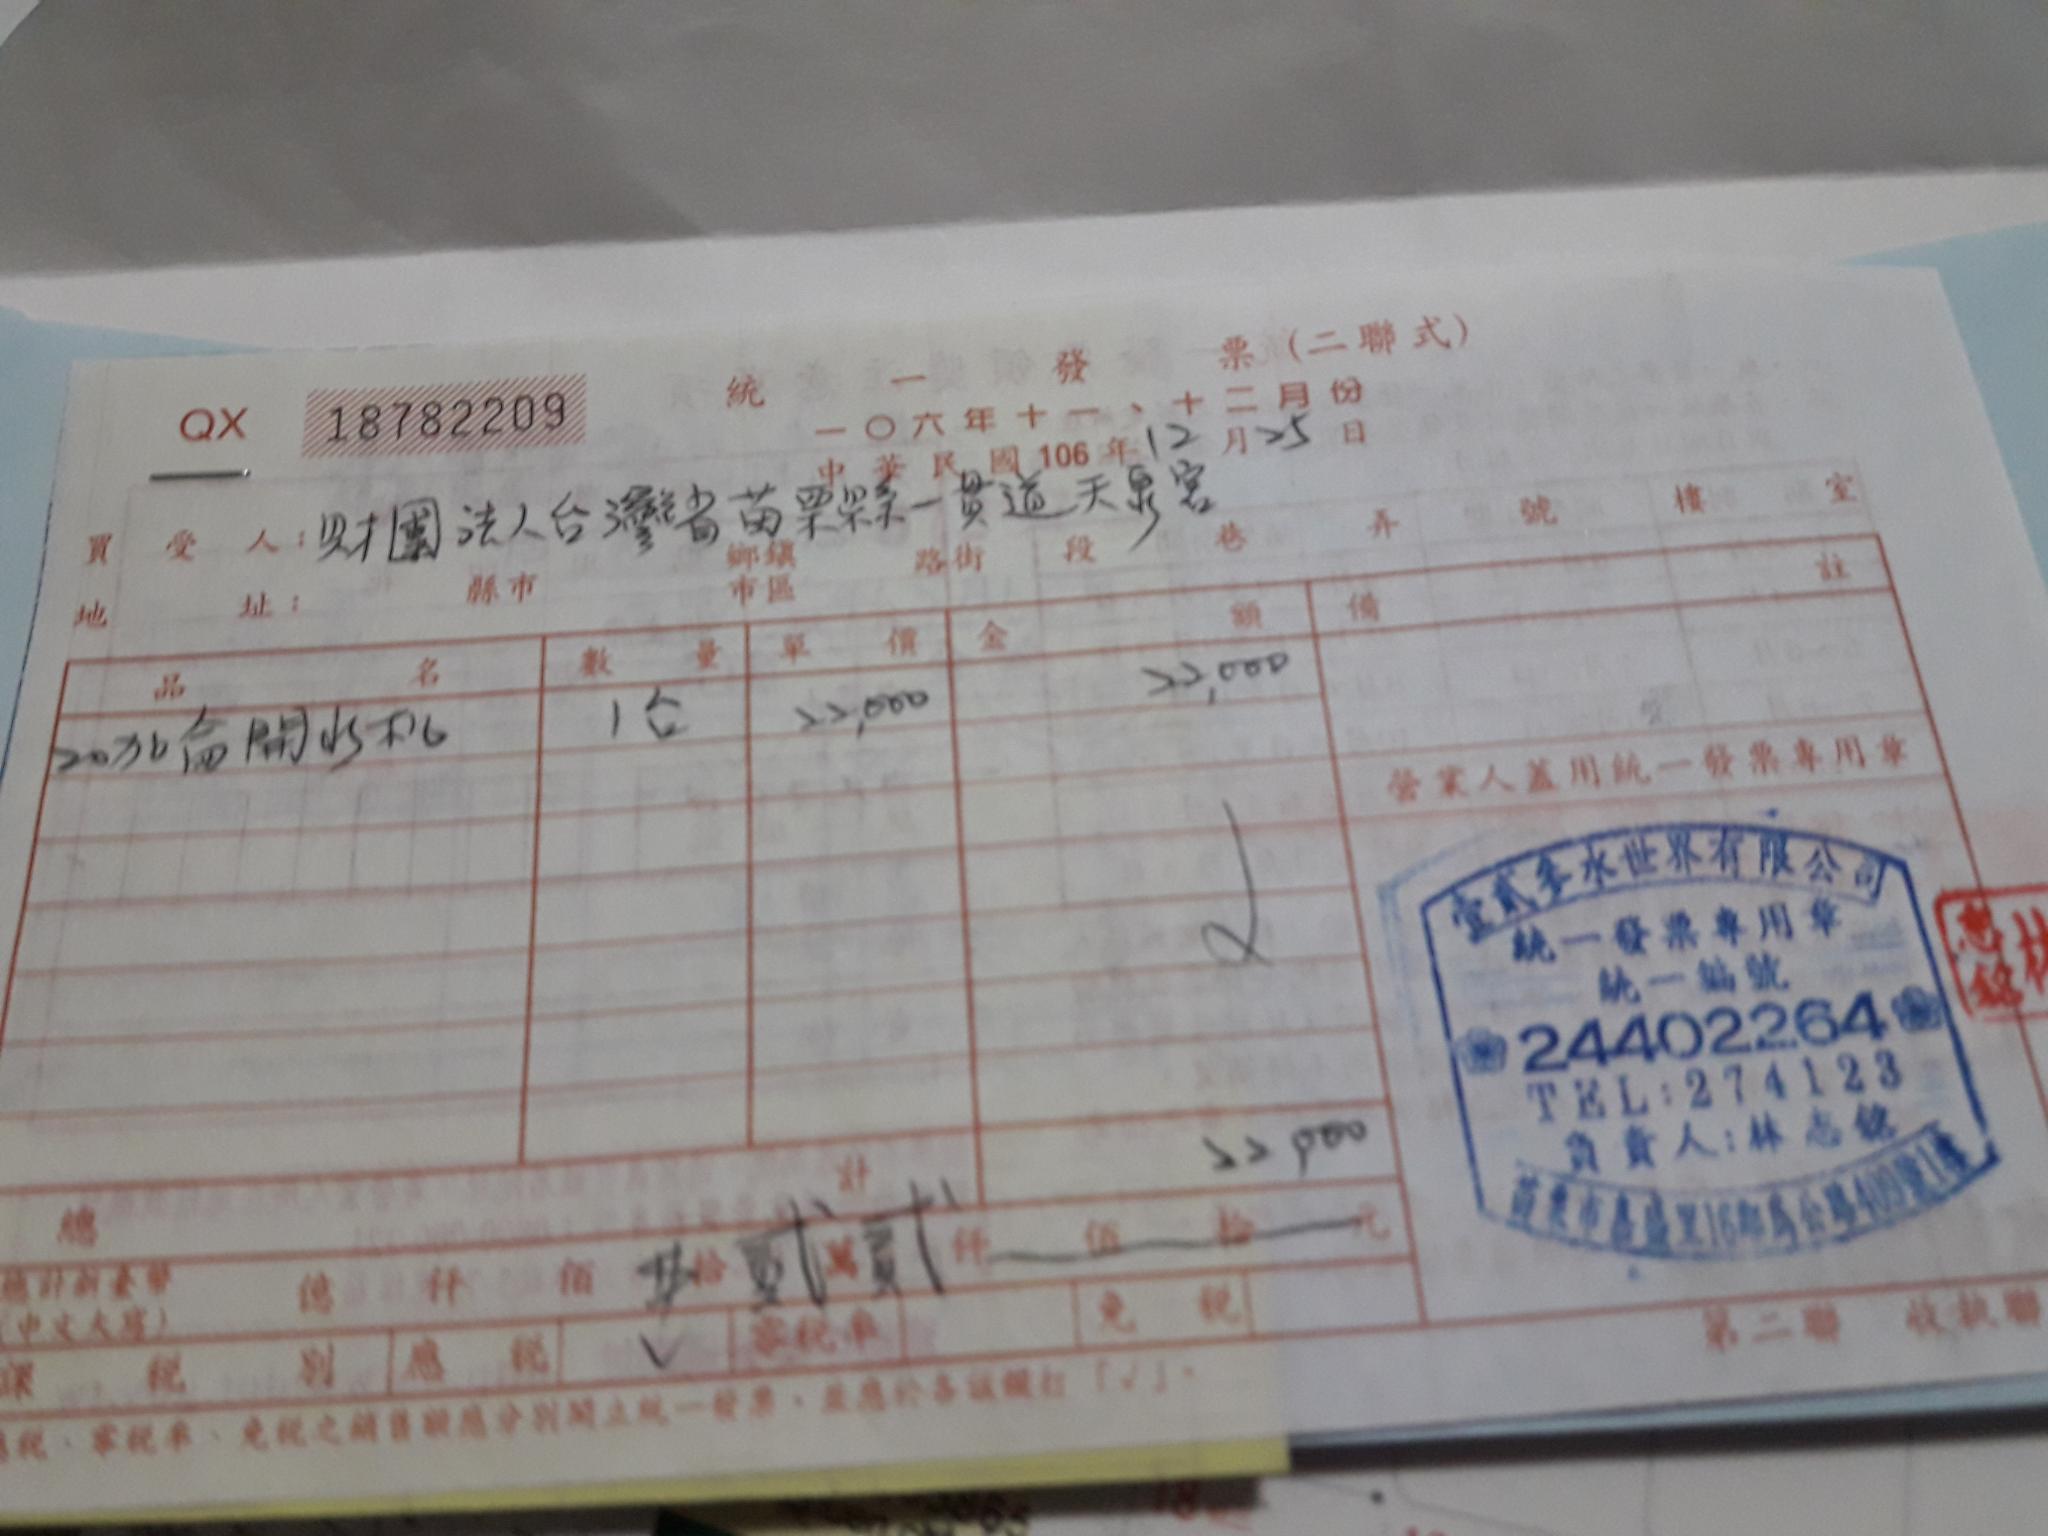 統一發票(二聯式)
QX 18782209
一〇六年十一、十二月份
中華民國106年12月25日
買受人：財團法人台灣省苗栗縣一貫道天泉宮
地址： 縣市 鄉鎮市區 路街 段 巷 弄 號 樓 室
品名 數量 單價 金額 備註
20加侖開水机 1台 22,000 22,000
營業人蓋用統一發票專用章
壹貳參水世界有限公司
統一發票專用章
統一編號
24402264
TEL:274123
負責人:林志銘
苗栗市嘉盛里16鄰為公路409號1樓
林志銘
總計 22,000
總計新臺幣
(中文大寫)
億 仟 佰 拾 貳 萬 貳 仟 佰 拾 元
課稅別 應稅 V 零稅率 免稅
應稅、零稅率、免稅之銷售額應分別開立統一發票，並應於各該欄打「√」。
第二聯 收執聯